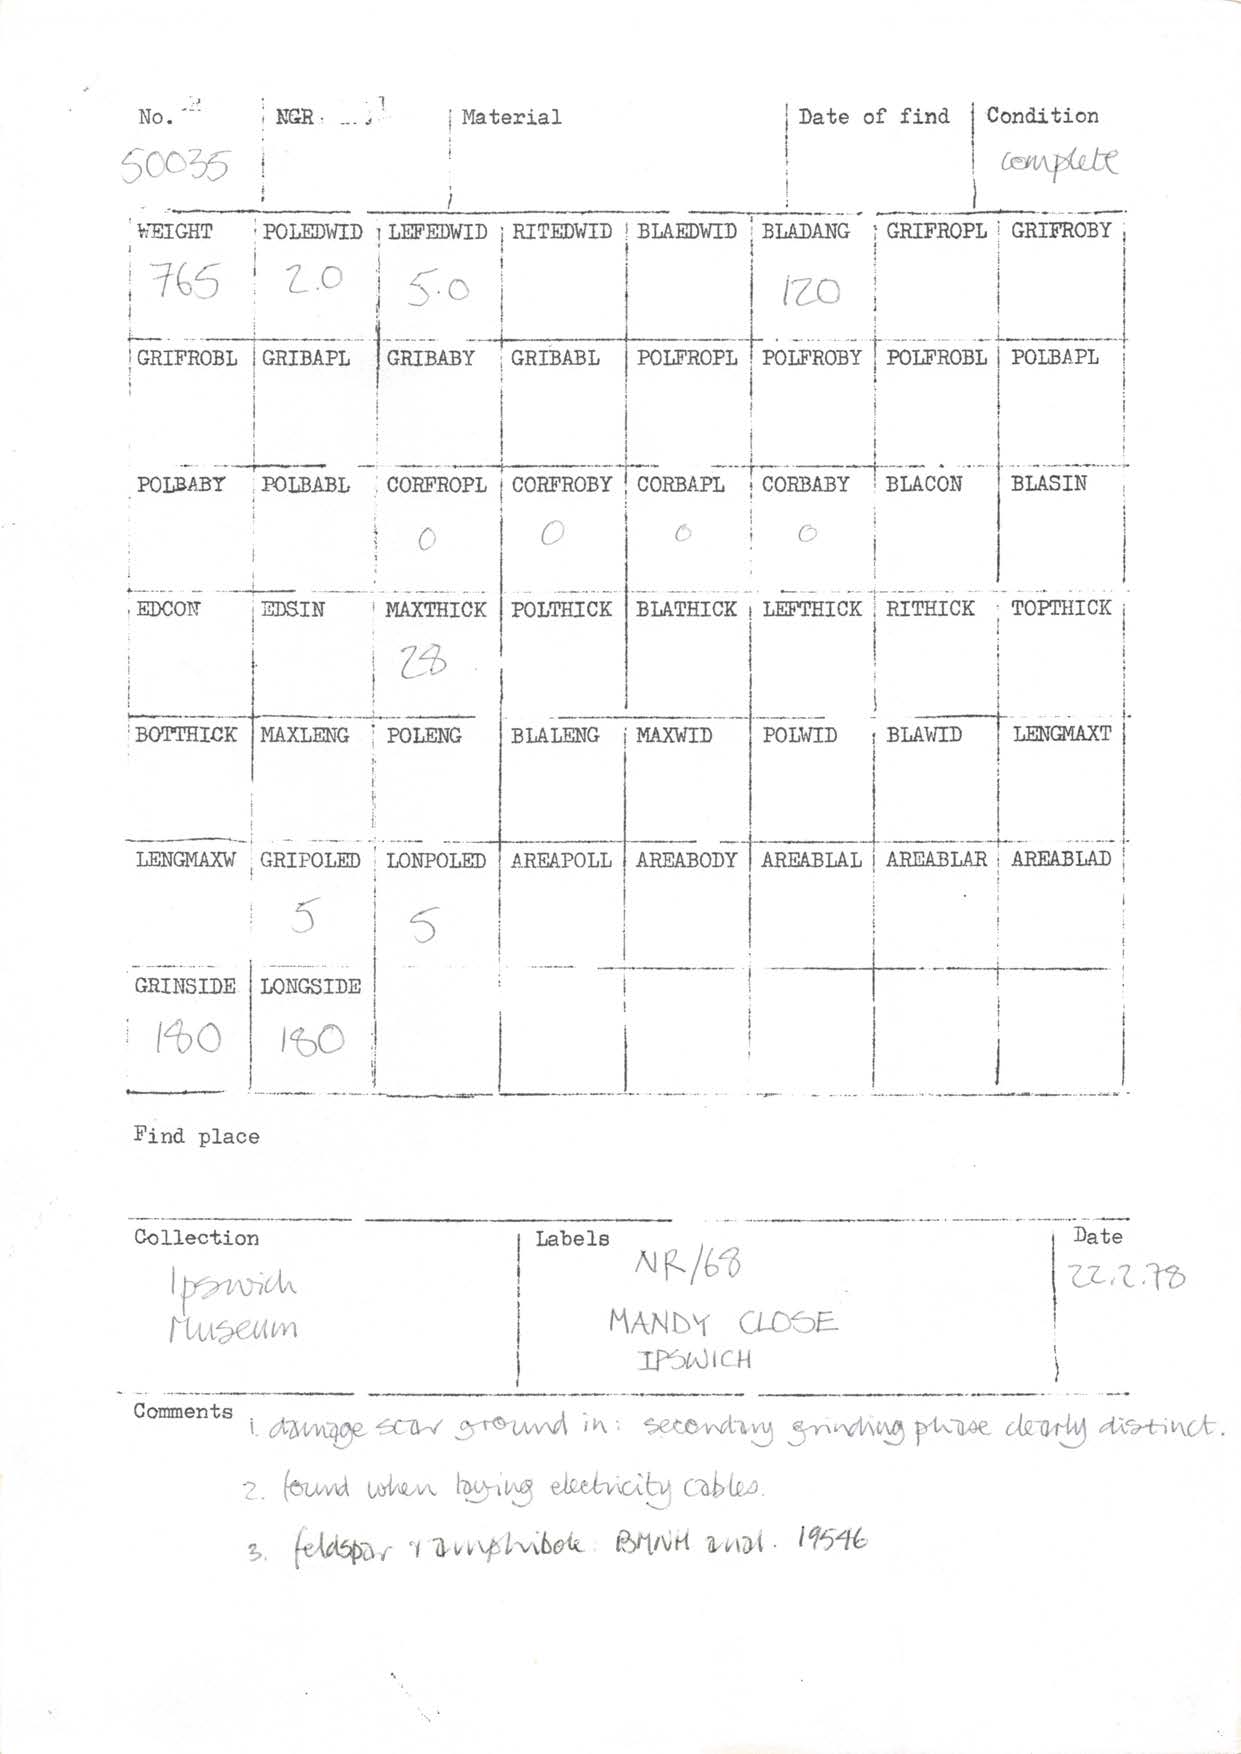 No. NGR Material Date of find Condition
50035 complete
WEIGHT POLEDWID LEFEDWID RITEDWID BLAEDWID BLADANG GRIFROPL GRIFROBY
765 2.0 5.0 120
GRIFROBL GRIBAPL GRIBABY GRIBABL POLFROPL POLFROBY POLFROBL POLBAPL
POLBABY POLBABL CORFROPL CORFROBY CORBAPL CORBABY BLACON BLASIN
0 0 0 0
EDCON EDSIN MAXTHICK POLTHICK BLATHICK LEFTHICK RITHICK TOPTHICK
28
BOTTHICK MAXLENG POLENG BLALENG MAXWID POLWID BLAWID LENGMAXT
LENGMAXW GRIPOLED LONPOLED AREAPOLL AREABODY AREABLAL AREABLAR AREABLAD
5 5
GRINSIDE LONGSIDE
180 180
Find place
Collection Labels Date
Ipswich NR/68 22.2.78
Museum MANDY CLOSE
IPSWICH
Comments 1. damage scar ground in: secondary grinding phase clearly distinct.
2. found when laying electricity cables.
3. feldspar & amphibole: BMNH anal. 19546